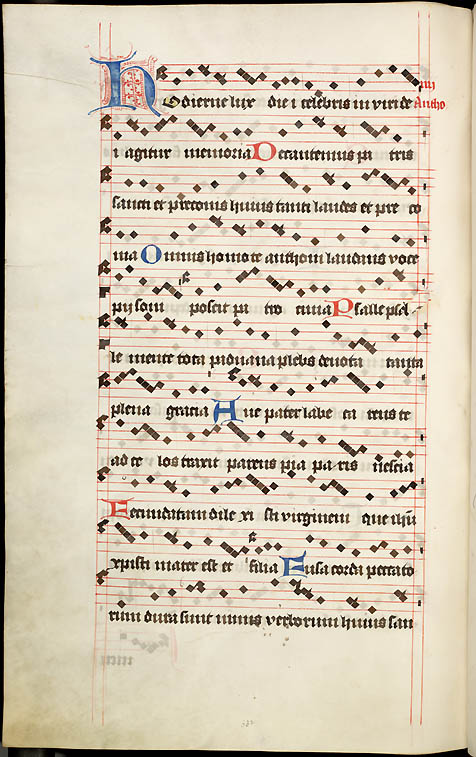 Hodierne lux diei celebris in viride
i agitur memoria Decantemus pa tris
sancti et preconis huius tanti laudes et pre co
nia Omnis homo te anthoni laudans voce
pij soni poscit pa tro cinia Psalle psal
le mente tota paduana plebs devota tanta
plena gracia Aue pater labe ca rens te
ad ce los traxit parens pia pa ris nescia
Fecundatam dile xi sti virginem que ihu
xpisti mater est et filia Ensa corda peccato
rum dura sunt nimis verborum huius san